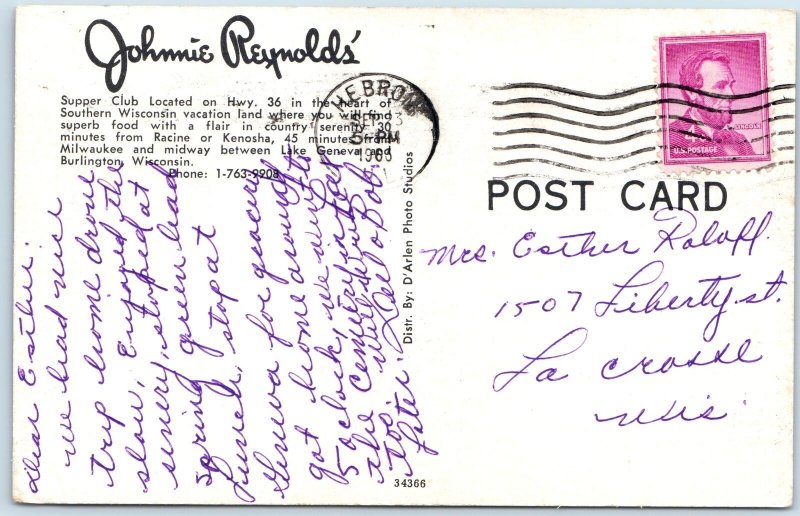 Johnnie Reynolds'
Supper Club Located on Hwy. 36 in the heart of
Southern Wisconsin vacation land where you will find
superb food with a flair in country serenity 30
minutes from Racine or Kenosha, 45 minutes from
Milwaukee and midway between Lake Geneva and
Burlington, Wisconsin.
Phone: 1-763-9908
HEBRON
SEP 23
5 PM
1963
4¢
LINCOLN
U.S. POSTAGE
POST CARD
Mrs. Esther Roloff.
1507 Liberty st.
La Crosse
Wis.
Dear Esther:
we had nice
trip home drove
slow, Enjoyed the
senery, stoped at
spring green had
Lunch, stop at
Geneva for grocery
got home around
5 o'clock, we went to
the cemetery
will write
too Les & Bob.
Later.
Distr. By: D'Arlen Photo Studios
34366